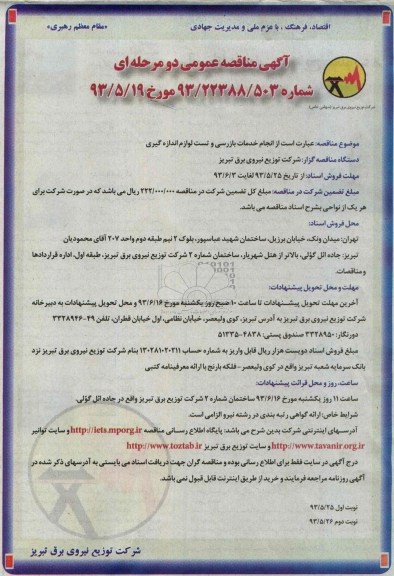 اقتصاد، فرهنگ، با عزم ملی و مدیریت جهادی
«مقام معظم رهبری»
آگهی مناقصه عمومی دو مرحله ای
شماره ۹۳/۲۲۳۸۸/۵۰۳ مورخ ۹۳/۵/۱۹
موضوع مناقصه: عبارت است از انجام خدمات بازرسی و تست لوازم اندازه گیری
دستگاه مناقصه گزار: شرکت توزیع نیروی برق تبریز
مهلت فروش اسناد: از تاریخ ۹۳/۵/۲۵ لغایت ۹۳/۶/۳
مبلغ تضمین شرکت در مناقصه: مبلغ کل تضمین شرکت در مناقصه ۲۲۲/۰۰۰/۰۰۰ ریال می باشد که در صورت شرکت برای
هر یک از نواحی بشرح اسناد مناقصه می باشد.
محل فروش اسناد:
تهران: میدان ونک، خیابان برزیل، ساختمان شهید عباسپور، بلوک ۲ نیم طبقه دوم واحد ۲۰۷ آقای محمودیان
تبریز: جاده ائل گؤلی، بالاتر از هتل شهریار، ساختمان شماره ۲ شرکت توزیع نیروی برق تبریز، طبقه اول، اداره قراردادها
و مناقصات.
مهلت و محل تحویل پیشنهادات:
آخرین مهلت تحویل پیشنهادات تا ساعت ۱۰ صبح روز یکشنبه مورخ ۹۳/۶/۱۶ و محل تحویل پیشنهادات به دبیرخانه
شرکت توزیع نیروی برق تبریز به آدرس تبریز، کوی ولیعصر، خیابان نظامی، اول خیابان قطران، تلفن ۴۹-۳۳۲۸۹۴۶
دورنگار: ۳۳۲۸۹۵۰ صندوق پستی: ۴۸۳۸-۵۱۳۳۵
مبلغ فروش اسناد دویست هزار ریال قابل واریز به شماره حساب ۱۳۰۲۸۱۰۲۰۲۱۱ بنام شرکت توزیع نیروی برق تبریز نزد
بانک سرمایه شعبه تبریز واقع در کوی ولیعصر - فلکه بارنج با ارائه معرفینامه کتبی
ساعت، روز و محل قرائت پیشنهادات:
ساعت ۱۱ روز یکشنبه مورخ ۹۳/۶/۱۶ ساختمان شماره ۲ شرکت توزیع نیروی برق تبریز واقع در جاده ائل گؤلی.
شرایط خاص: ارائه گواهی رتبه بندی در رشته نیرو الزامی است.
آدرسهای اینترنتی شرکت بدین شرح می باشد: پایگاه اطلاع رسانی مناقصه http://iets.mporg.ir و سایت توانیر
http://www.tavanir.org.ir و سایت توزیع برق تبریز http://www.toztab.ir
درج آگهی در سایت فقط برای اطلاع رسانی بوده و مناقصه گران جهت دریافت اسناد می بایستی به آدرسهای ذکر شده در
آگهی روزنامه مراجعه فرمایند و خرید از طریق اینترنت قابل قبول نمی باشد.
نوبت اول ۹۳/۵/۲۵
نوبت دوم ۹۳/۵/۲۶
شرکت توزیع نیروی برق تبریز